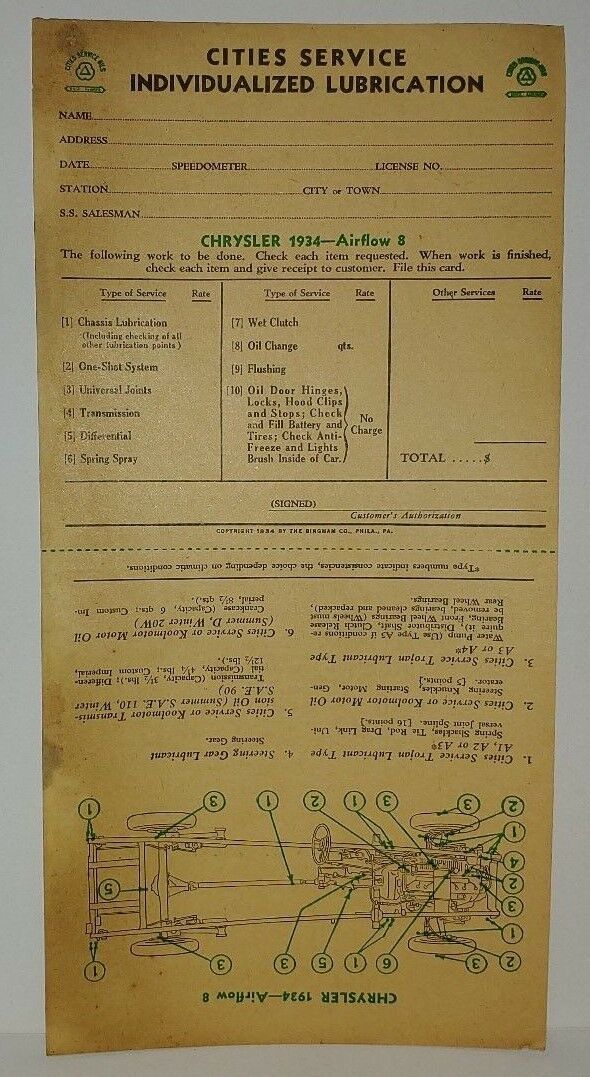 CITIES SERVICE
INDIVIDUALIZED LUBRICATION
NAME
ADDRESS
DATE SPEEDOMETER LICENSE NO.
STATION CITY or TOWN
S.S. SALESMAN
CHRYSLER 1934—Airflow 8
The following work to be done. Check each item requested. When work is finished,
check each item and give receipt to customer. File this card.
Type of Service Rate
[1] Chassis Lubrication
(Including checking of all
other lubrication points)
[2] One-Shot System
[3] Universal Joints
[4] Transmission
[5] Differential
[6] Spring Spray
Type of Service Rate
[7] Wet Clutch
[8] Oil Change qts.
[9] Flushing
[10] Oil Door Hinges,
Locks, Hood Clips
and Stops; Check
and Fill Battery and
Tires; Check Anti-
Freeze and Lights
Brush Inside of Car.
No
Charge
Other Services Rate
TOTAL .....$
(SIGNED)
Customer's Authorization
COPYRIGHT 1934 BY THE BINGHAM CO., PHILA., PA.
CHRYSLER 1934—Airflow 8
3 2 1 6 1 5 3 3 1
1
3
2
4
1
2 3 3 1 2 1 3 1
5
1. Cities Service Trojan Lubricant Type
A1, A2 or A3*
Spring Shackles, Tie Rod, Drag Link, Uni-
versal Joint Spline. [16 points.]
2. Cities Service or Koolmotor Motor Oil
Steering Knuckles, Starting Motor, Gen-
erator. [5 points.]
3. Cities Service Trojan Lubricant Type
A3 or A4*
Water Pump (Use Type A5 if conditions re-
quire it); Distributor Shaft, Clutch Release
Bearing, Front Wheel Bearings (Wheels must
be removed, bearings cleaned and repacked),
Rear Wheel Bearings.
4. Steering Gear Lubricant
Steering Gear.
5. Cities Service or Koolmotor Transmis-
sion Oil (Summer S.A.E. 110, Winter
S.A.E. 90)
Transmission (Capacity, 3½ lbs.); Differen-
tial (Capacity, 4¼ lbs.; Custom Imperial,
12½ lbs.).
6. Cities Service or Koolmotor Motor Oil
(Summer D, Winter 20W)
Crankcase (Capacity, 6 qts.; Custom Im-
perial, 8½ qts.).
*Type numbers indicate consistencies, the choice depending on climatic conditions.